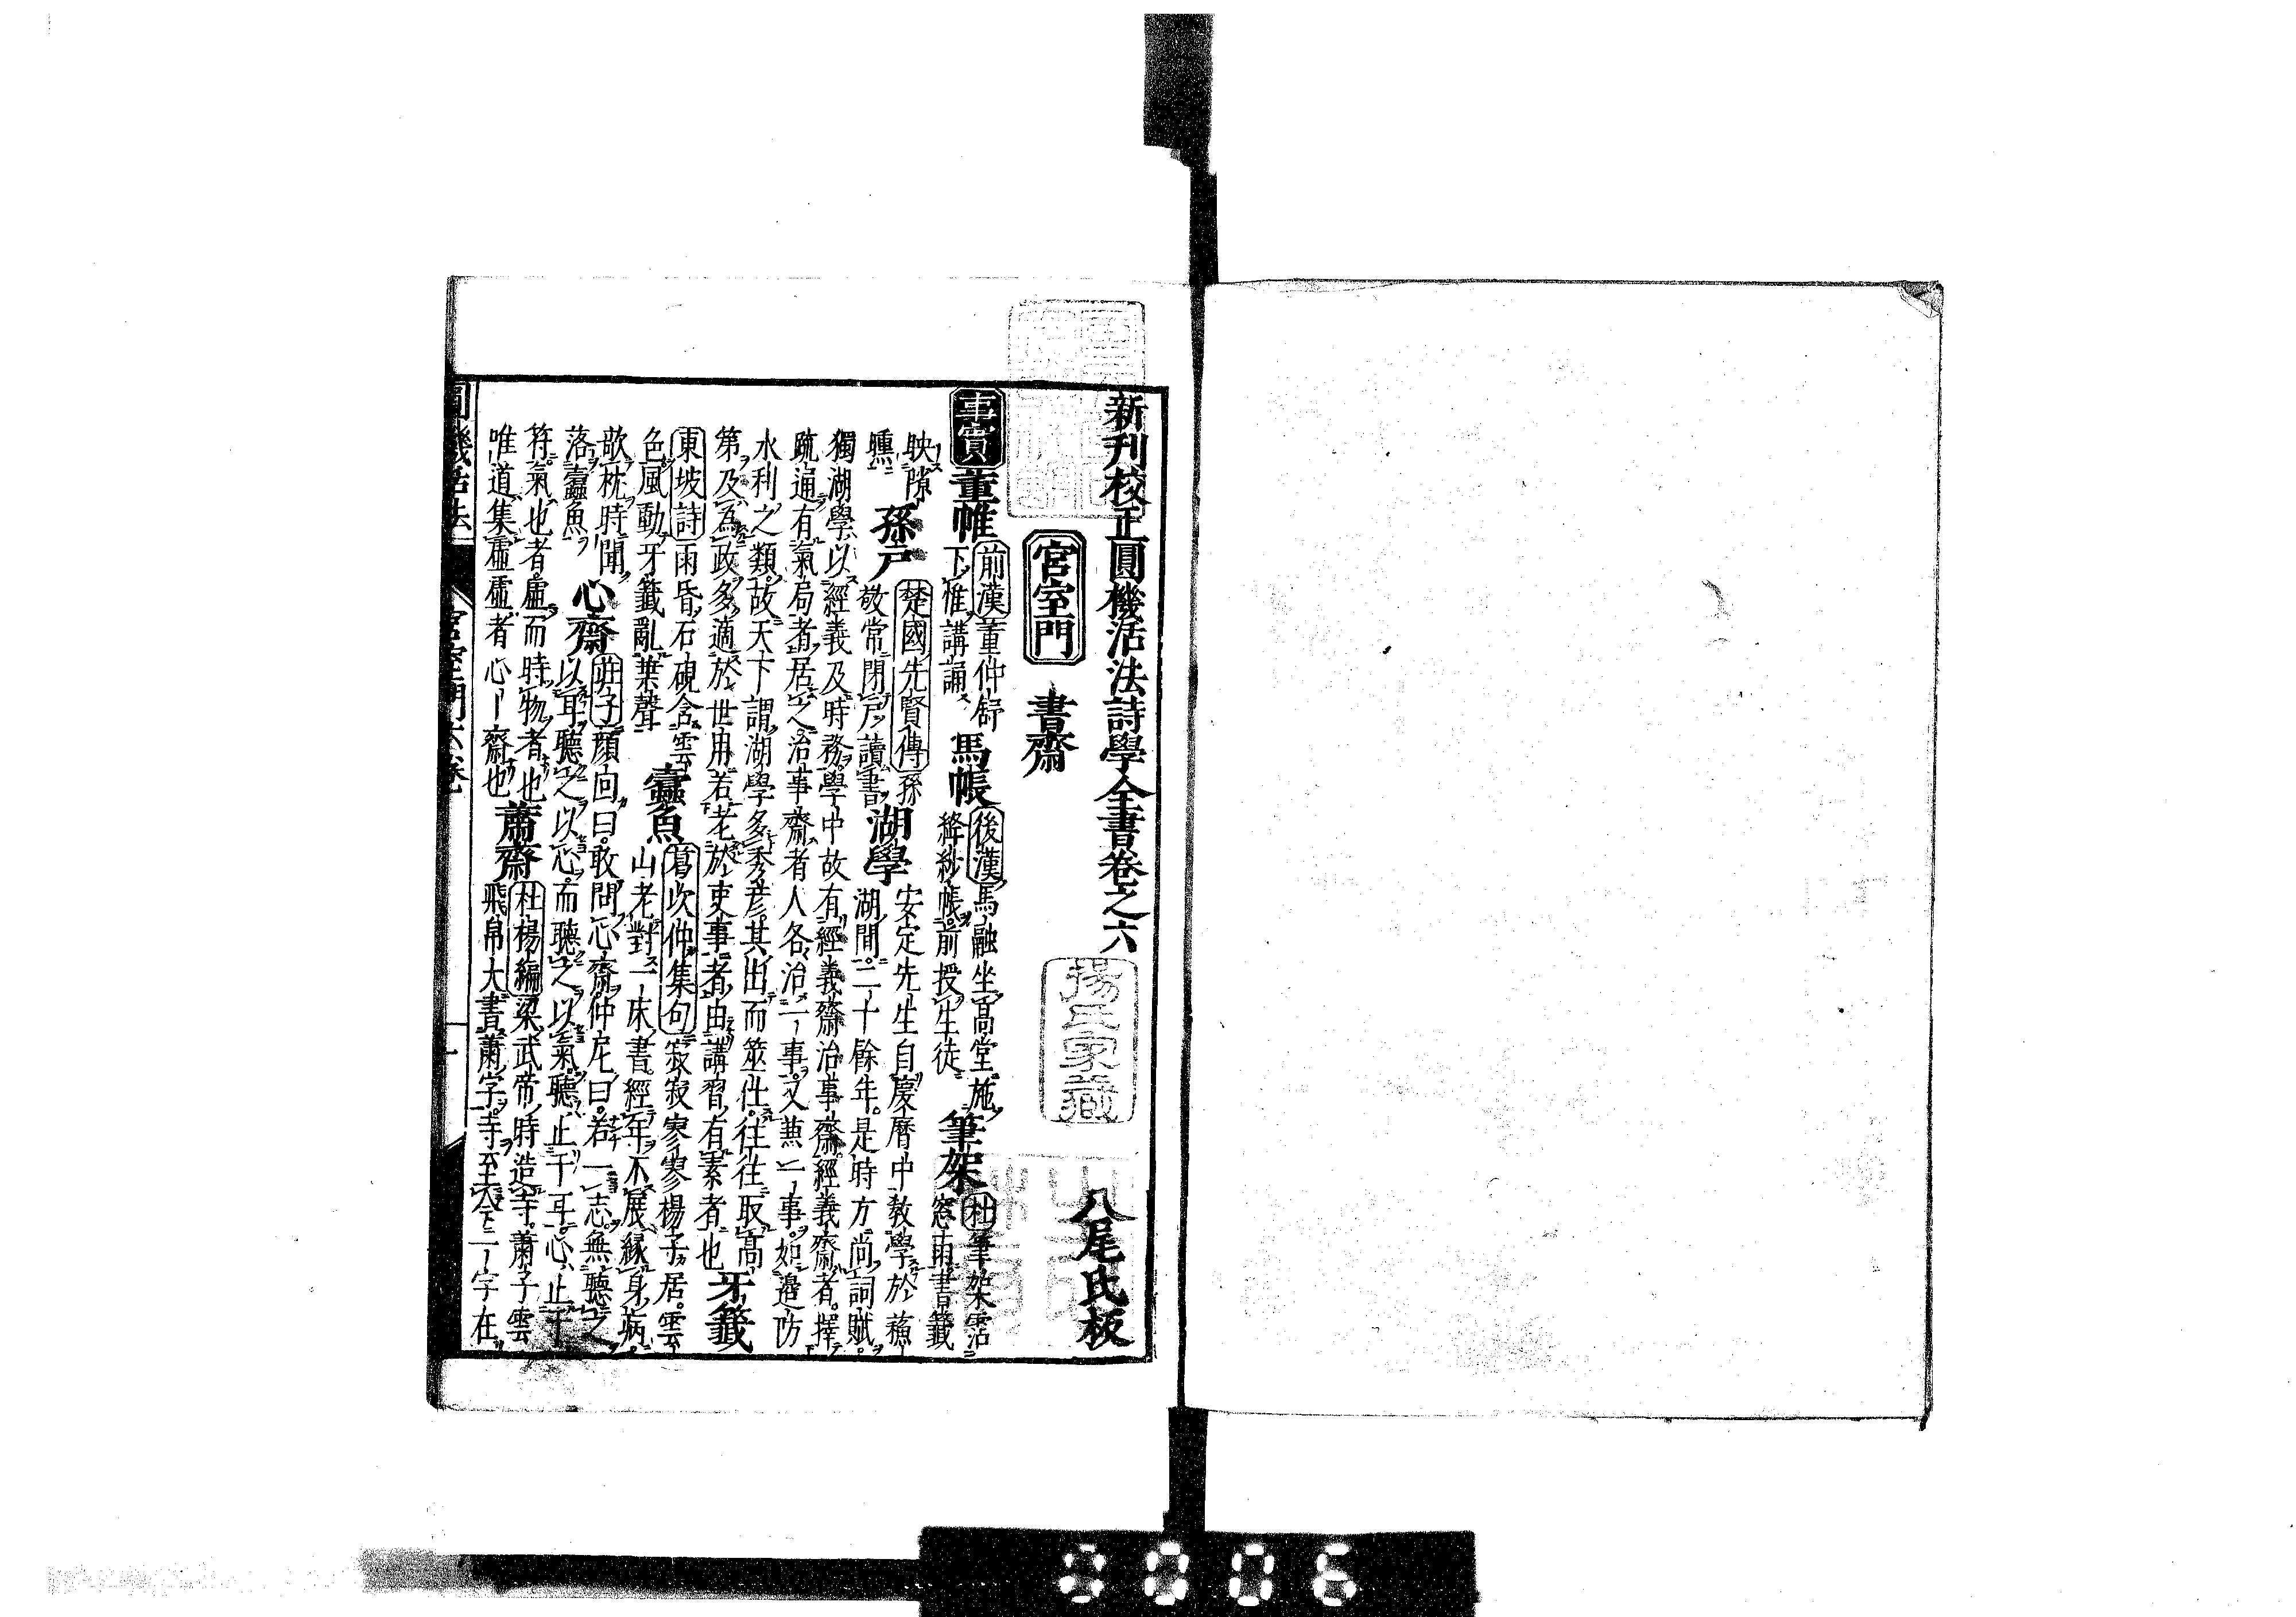 新刊校正圓機活法詩學全書卷之六 八尾氏板
宮室門 書齋
揚氏家藏
事實 董帷 前漢董仲舒
下帷講誦 馬帳 後漢馬融坐高堂施
絳紗帳前授生徒 筆架 杜筆架霑
窓雨書籤
映隙
曛 孫戸 楚國先賢傳孫
敬常閉戸讀書 湖學 安定先生自慶曆中教學於蘇
湖間二十餘年是時方尚詞賦
獨湖學以經義及時務學中故有經義齋治事齋經義齋者擇
疏通有氣局者居之治事齋者人各治一事又兼一事如邊防
水利之類故天下謂湖學多秀彦其出而筮仕往往取高
第及為政多適於世用若老於吏事者由講習有素者也 牙籤
東坡詩雨昏石硯含雲
色風動牙籤亂葉聲 蠹魚 葛次仲集句寂寂寥寥楊子居雲
山老對一床書經年不展縁身病
欹枕時聞
落蠹魚 心齋 莊子顔回曰敢問心齋仲尼曰若一志無聽之
以耳聽之以心而聽之以氣聽止于耳心止于
符氣也者虛而時物者也
唯道集虛虛者心齋也 蕭齋 杜楊編梁武帝時造寺蕭子雲
飛帛大書蕭字寺至今一字在
圓機活法 宮室門六卷 一
0006